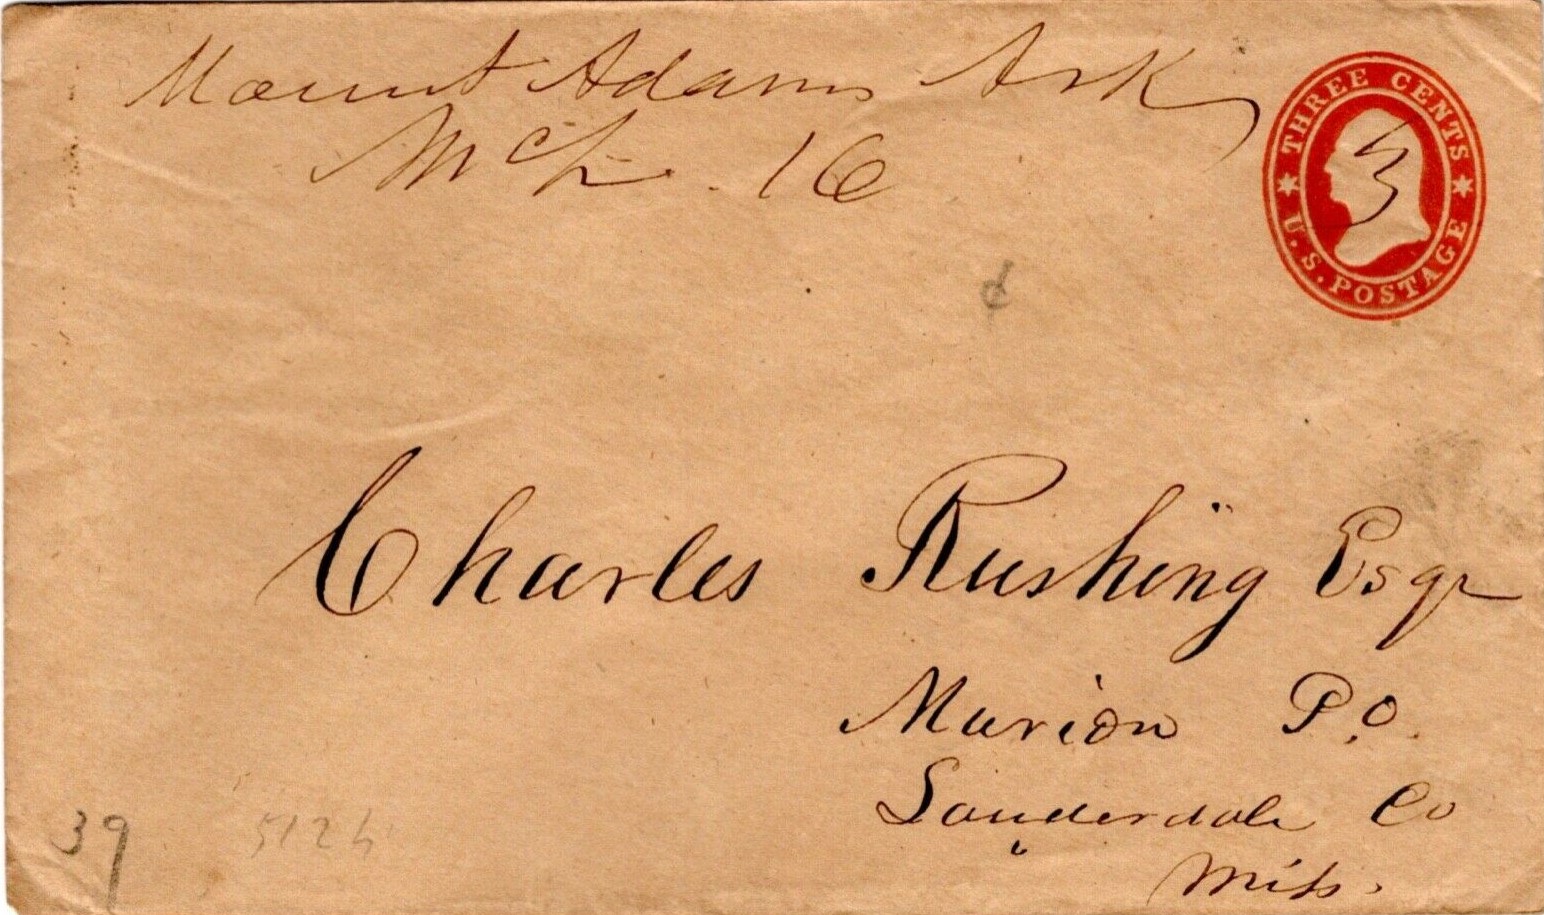 Mount Adams Ark
Mch. 16
THREE CENTS
U.S. POSTAGE
3
Charles Rushing Esqr
Marion P.O.
Lauderdale Co
Miss.
39